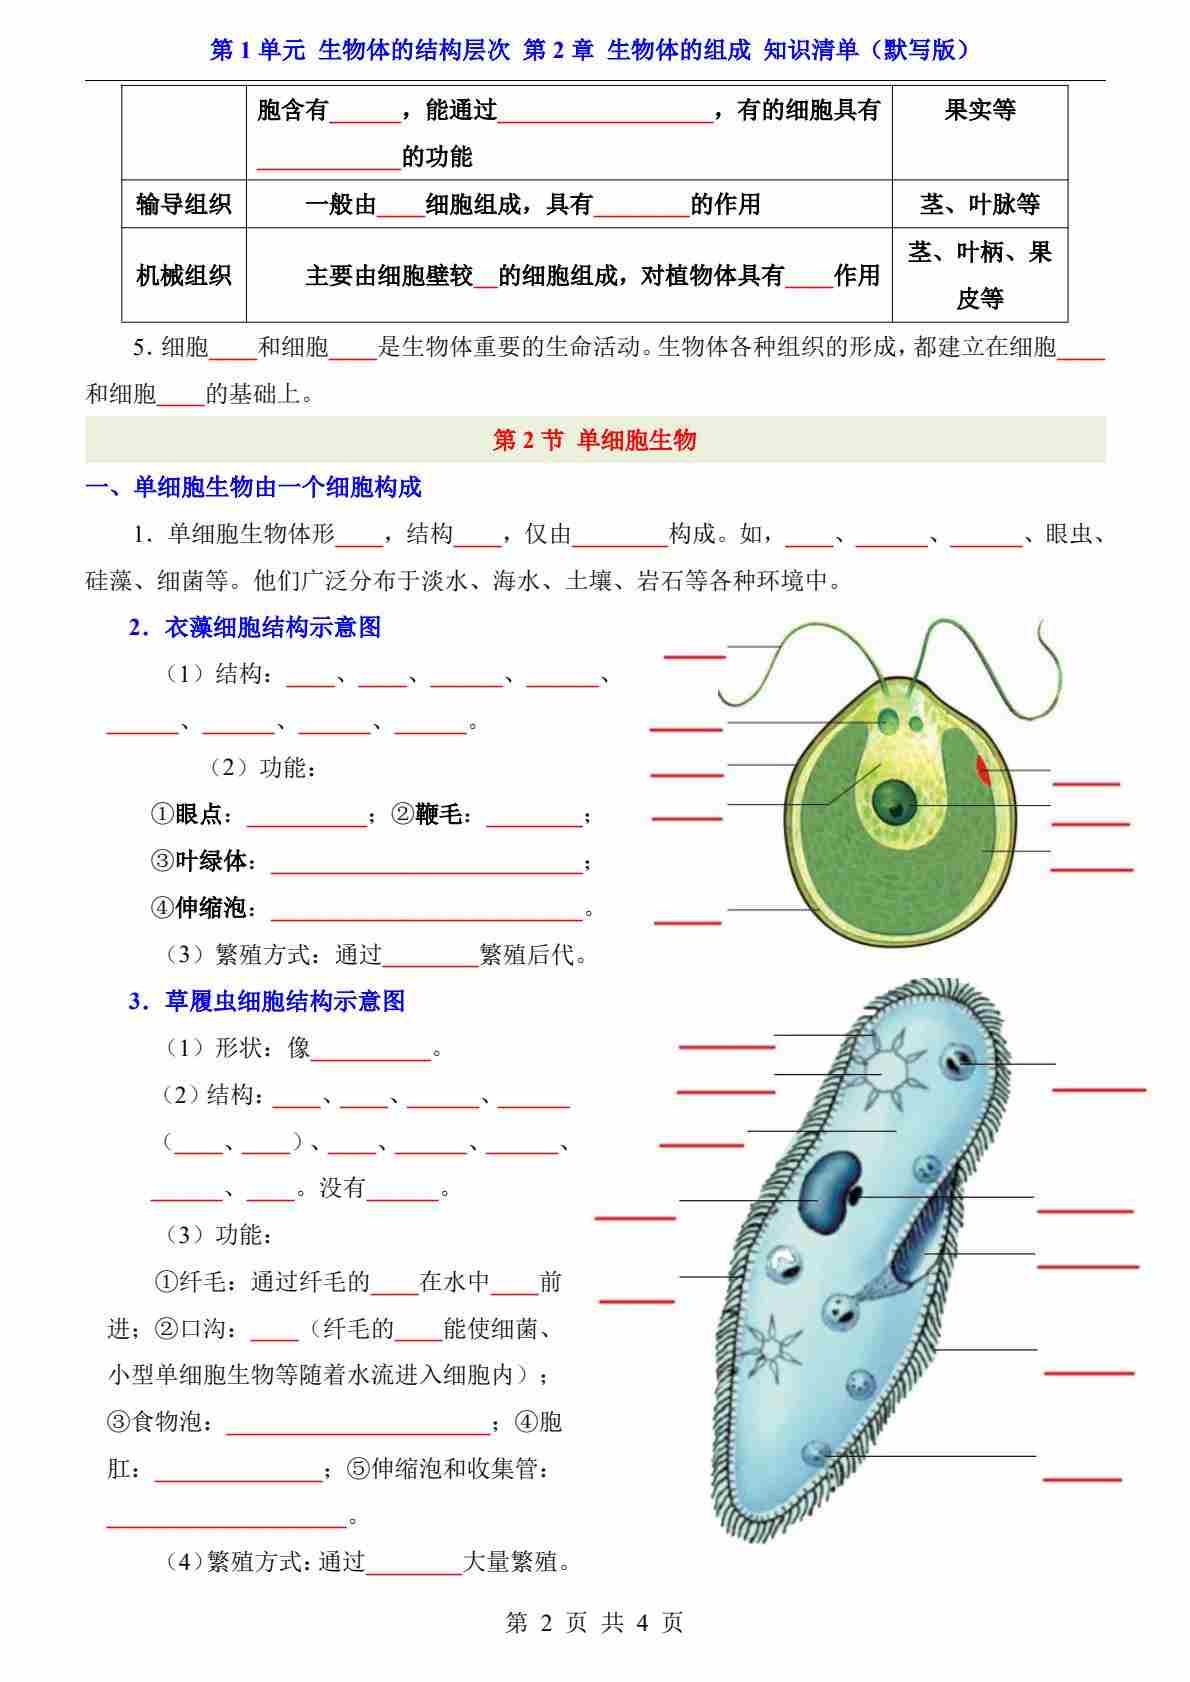 第 1 单元 生物体的结构层次 第 2 章 生物体的组成 知识清单（默写版）
胞含有______，能通过__________________，有的细胞具有
____________的功能
果实等
输导组织 一般由____细胞组成，具有________的作用 茎、叶脉等
机械组织 主要由细胞壁较__的细胞组成，对植物体具有____作用 茎、叶柄、果
皮等
5．细胞____和细胞____是生物体重要的生命活动。生物体各种组织的形成，都建立在细胞____
和细胞____的基础上。
第 2 节 单细胞生物
一、单细胞生物由一个细胞构成
1．单细胞生物体形____，结构____，仅由________构成。如，____、______、______、眼虫、
硅藻、细菌等。他们广泛分布于淡水、海水、土壤、岩石等各种环境中。
2．衣藻细胞结构示意图
（1）结构：____、____、______、______、
______、______、______、______。
（2）功能：
①眼点：__________；②鞭毛：________；
③叶绿体：__________________________；
④伸缩泡：__________________________。
（3）繁殖方式：通过________繁殖后代。
3．草履虫细胞结构示意图
（1）形状：像__________。
（2）结构：____、____、______、______
（____、____）、____、______、______、
______、____。没有______。
（3）功能：
①纤毛：通过纤毛的____在水中____前
进；②口沟：____（纤毛的____能使细菌、
小型单细胞生物等随着水流进入细胞内）；
③食物泡：______________________；④胞
肛：______________；⑤伸缩泡和收集管：
____________________。
（4）繁殖方式：通过________大量繁殖。
第 2 页 共 4 页